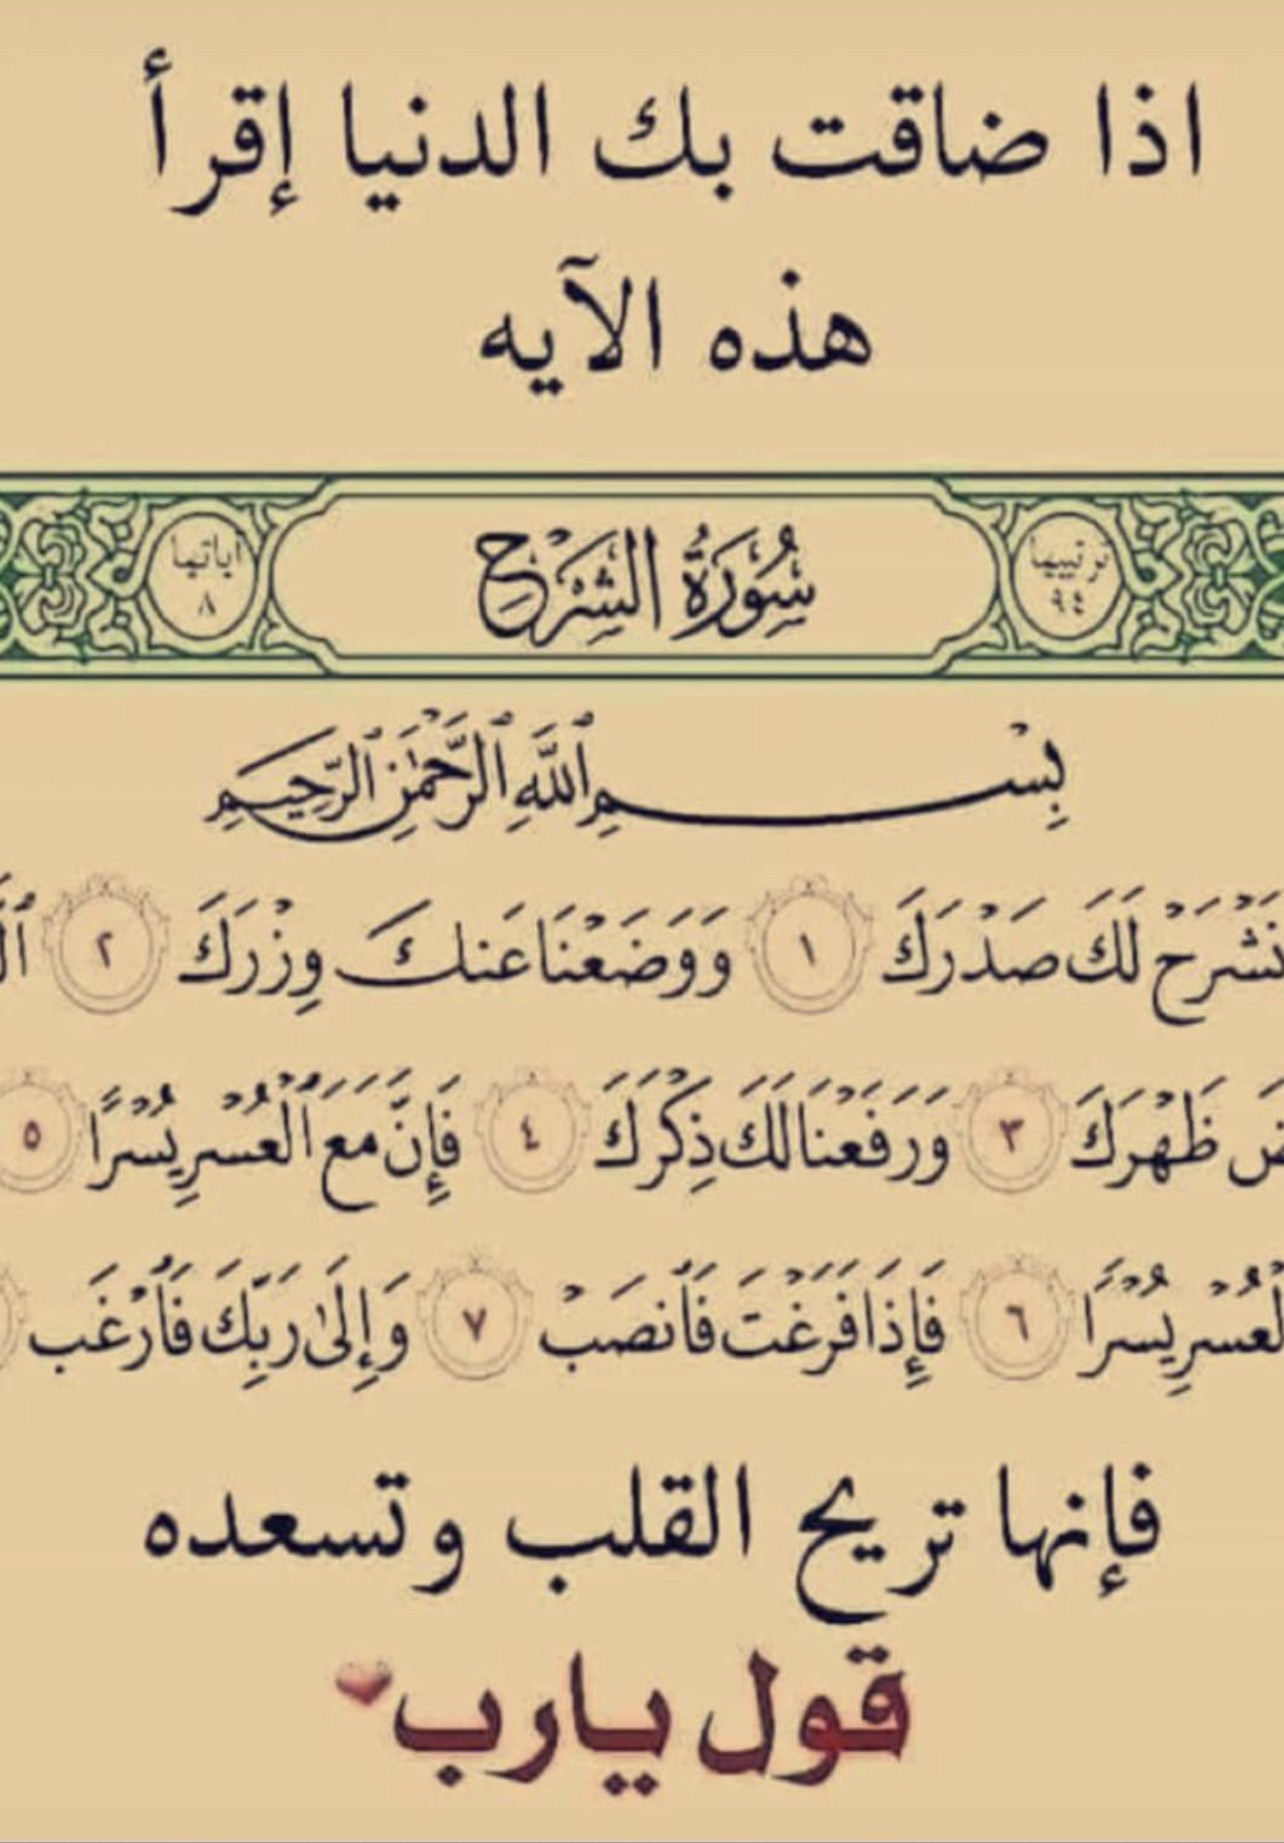 اذا ضاقت بك الدنيا إقرأ
هذه الآيه
ترتيبها
٩٤
سُورَةُ الشَّرْحِ
آياتها
٨
بِسْمِ ٱللَّهِ ٱلرَّحْمَٰنِ ٱلرَّحِيمِ
نَشْرَحْ لَكَ صَدْرَكَ ١ وَوَضَعْنَا عَنكَ وِزْرَكَ ٢
ضَ ظَهْرَكَ ٣ وَرَفَعْنَا لَكَ ذِكْرَكَ ٤ فَإِنَّ مَعَ ٱلْعُسْرِ يُسْرًا ٥
لْعُسْرِ يُسْرًا ٦ فَإِذَا فَرَغْتَ فَٱنصَبْ ٧ وَإِلَىٰ رَبِّكَ فَٱرْغَب
فإنها تريح القلب وتسعده
قول يارب